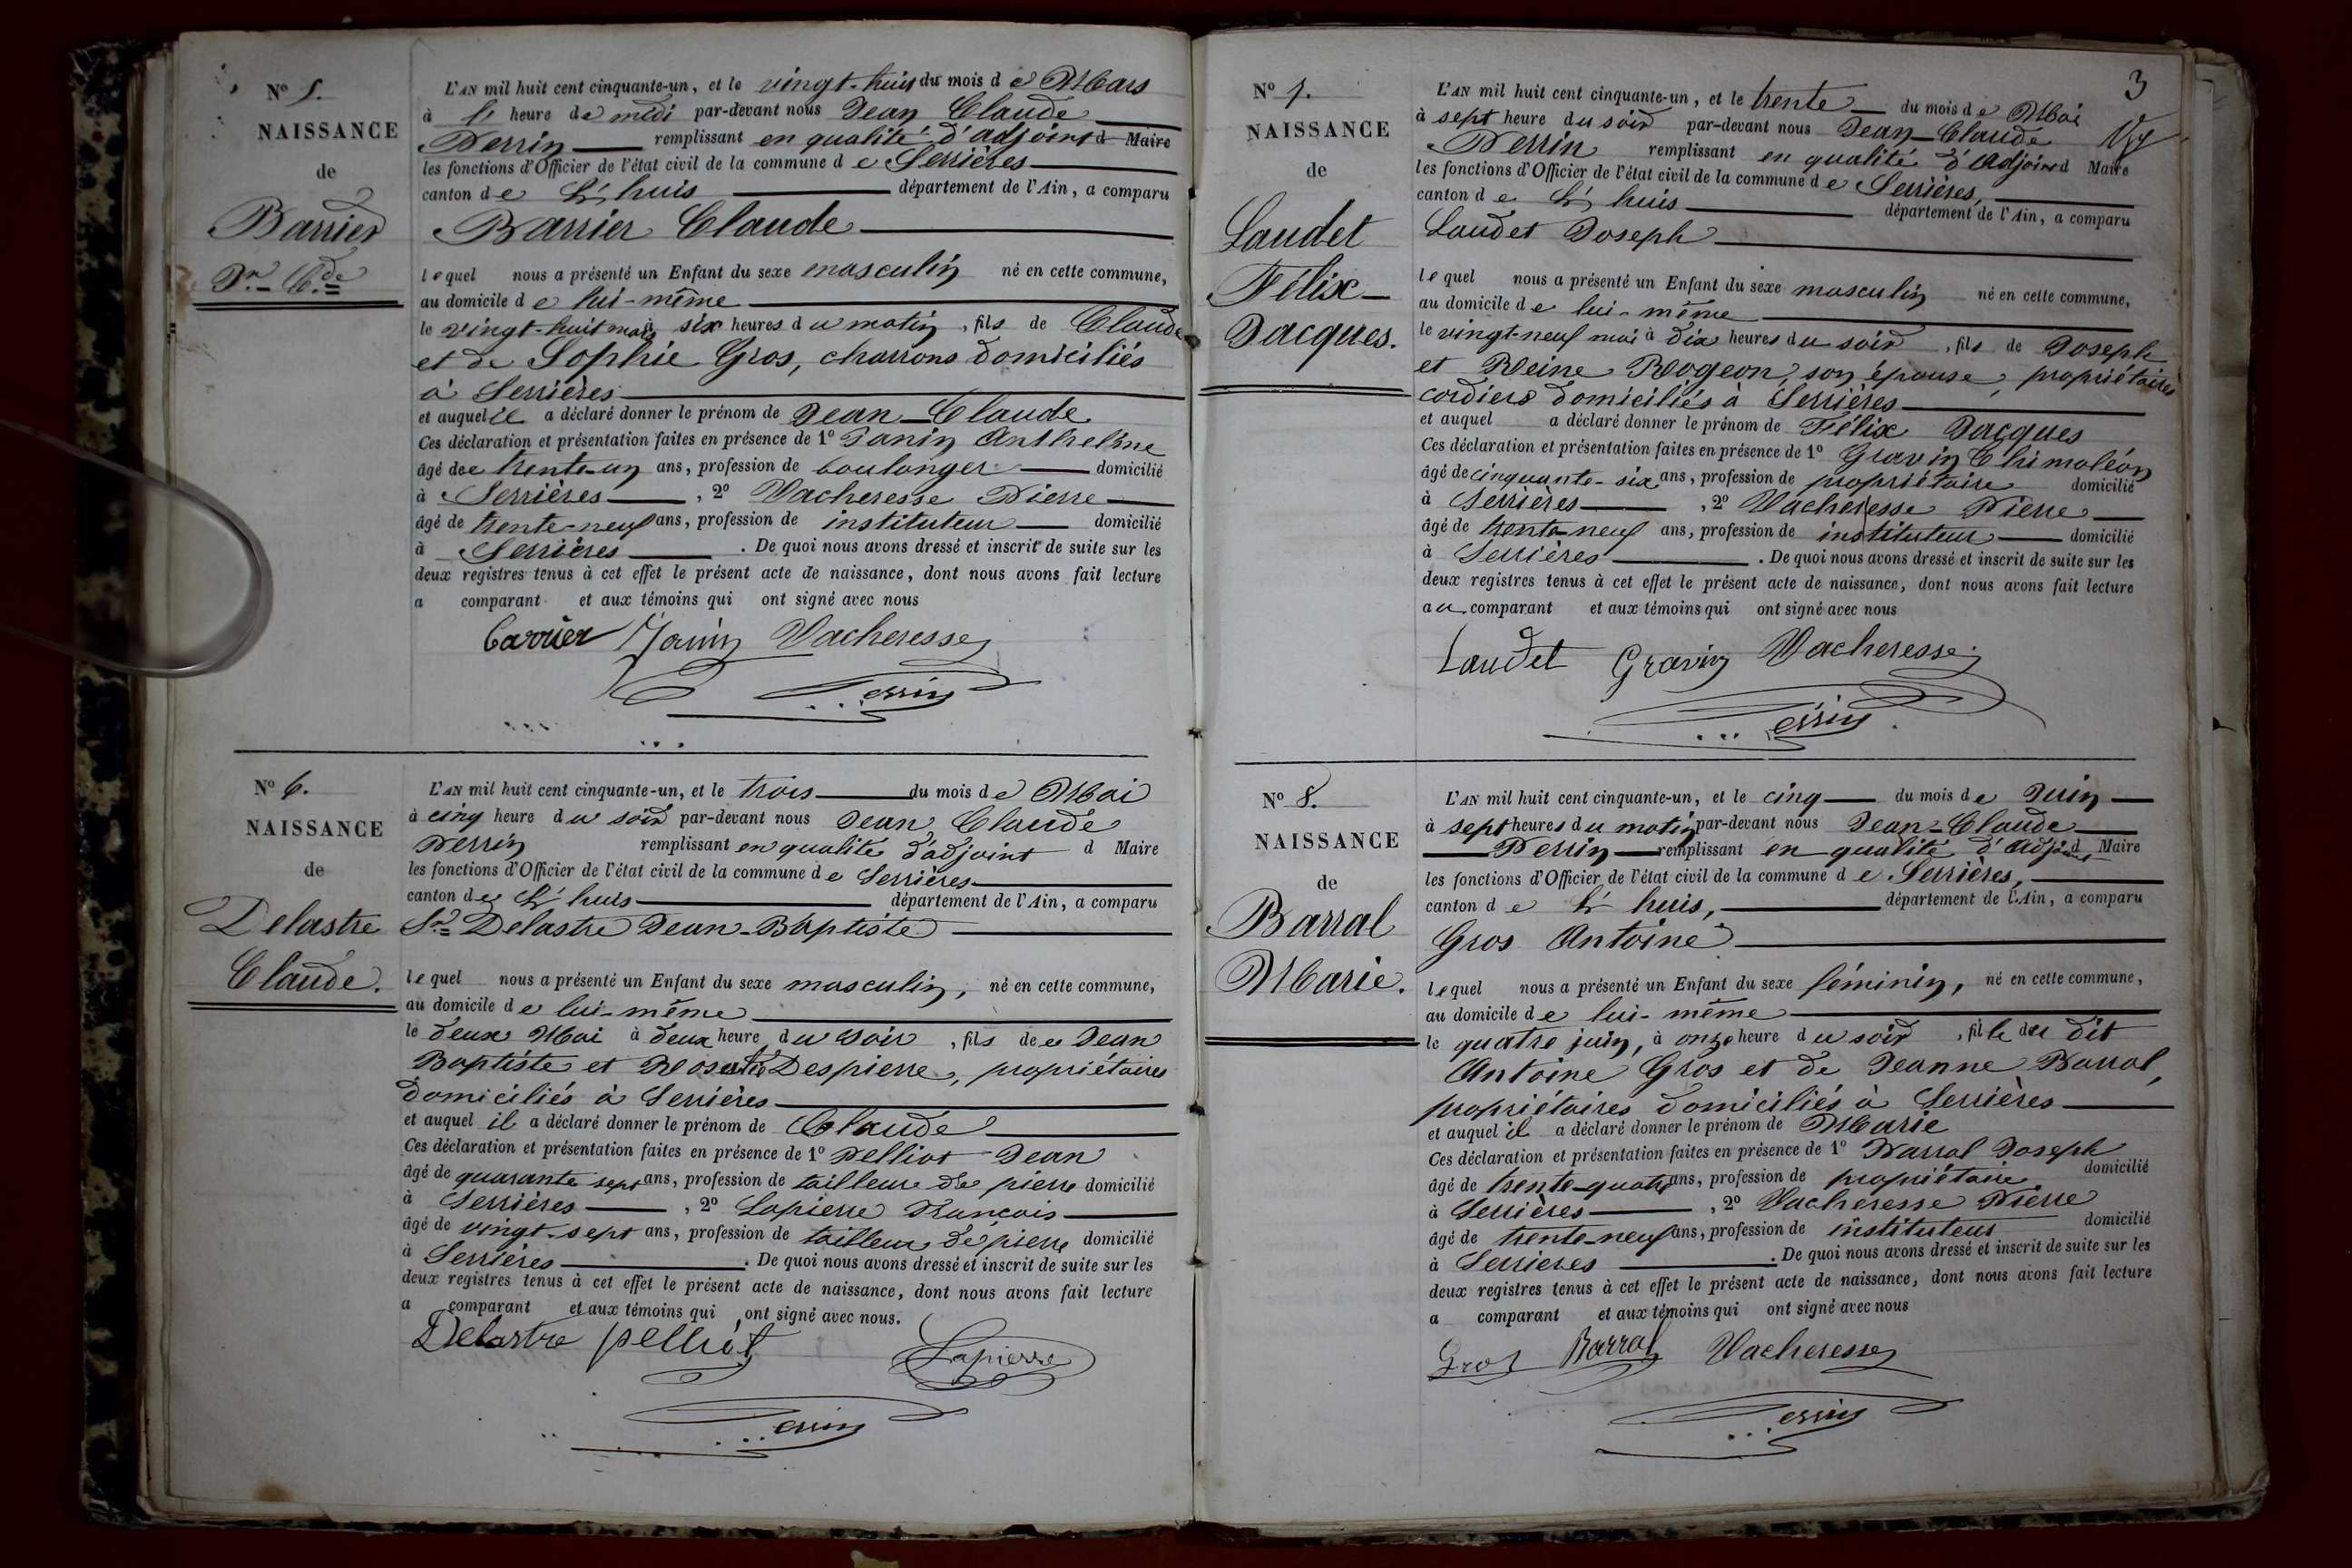 Nº 5.
NAISSANCE
de
Barrier
Jn Cde
L'AN mil huit cent cinquante-un, et le vingt-huit du mois de Mars
à l' heure de midi par-devant nous Jean Claude
Perrin remplissant en qualité d'adjoint d Maire
les fonctions d'Officier de l'état civil de la commune de Serrières
canton de L'huis département de l'Ain, a comparu
Barrier Claude
lequel nous a présenté un Enfant du sexe masculin né en cette commune,
au domicile de lui-même
le vingt-huit mars à six heures du matin, fils de Claude
et de Sophie Gros, charrons domiciliés
à Serrières
et auquel il a déclaré donner le prénom de Jean-Claude
Ces déclaration et présentation faites en présence de 1º Janin Anthelme
âgé de trente-un ans, profession de boulanger domicilié
à Serrières, 2º Vacheresse Pierre
âgé de trente-neuf ans, profession de instituteur domicilié
à Serrières. De quoi nous avons dressé et inscrit de suite sur les
deux registres tenus à cet effet le présent acte de naissance, dont nous avons fait lecture
a comparant et aux témoins qui ont signé avec nous
Barrier Janin Vacheresse
Perrin
Nº 6.
NAISSANCE
de
Delastre
Claude.
L'AN mil huit cent cinquante-un, et le trois du mois de Mai
à cinq heure du soir par-devant nous Jean Claude
Perrin remplissant en qualité d'adjoint d Maire
les fonctions d'Officier de l'état civil de la commune de Serrières
canton de L'huis département de l'Ain, a comparu
Sr Delastre Jean-Baptiste
lequel nous a présenté un Enfant du sexe masculin, né en cette commune,
au domicile de lui-même
le deux Mai à deux heure du soir, fils de Jean
Baptiste et Despierre, propriétaires
domiciliés à Serrières
et auquel il a déclaré donner le prénom de Claude
Ces déclaration et présentation faites en présence de 1º Pelliot Jean
âgé de quarante sept ans, profession de tailleur de pierre domicilié
à Serrières, 2º Lapierre Francois
âgé de vingt-sept ans, profession de tailleur de pierre domicilié
à Serrières. De quoi nous avons dressé et inscrit de suite sur les
deux registres tenus à cet effet le présent acte de naissance, dont nous avons fait lecture
a comparant et aux témoins qui ont signé avec nous.
Delastre pelliot Lapierre
Perrin
3
Nº 7.
NAISSANCE
de
Laudet
Félix-
Jacques.
L'AN mil huit cent cinquante-un, et le trente du mois de Mai
à sept heure du soir par-devant nous Jean-Claude
Perrin remplissant en qualité d'Adjoint d Maire
les fonctions d'Officier de l'état civil de la commune de Serrières,
canton de L'huis département de l'Ain, a comparu
Laudet Joseph
lequel nous a présenté un Enfant du sexe masculin né en cette commune,
au domicile de lui-même
le vingt-neuf mai à dix heures du soir, fils de Joseph
et Reine Rogeon, son épouse, propriétaires
cordiers domiciliés à Serrières
et auquel a déclaré donner le prénom de Félix Jacques
Ces déclaration et présentation faites en présence de 1º Gravin Thimoléon
âgé de cinquante-six ans, profession de propriétaire domicilié
à Serrières, 2º Vacheresse Pierre
âgé de trente-neuf ans, profession de instituteur domicilié
à Serrières. De quoi nous avons dressé et inscrit de suite sur les
deux registres tenus à cet effet le présent acte de naissance, dont nous avons fait lecture
au comparant et aux témoins qui ont signé avec nous
Laudet Gravin Vacheresse
Perrin
Nº 8.
NAISSANCE
de
Barral
Marie.
L'AN mil huit cent cinquante-un, et le cinq du mois de Juin
à sept heures du matin par-devant nous Jean-Claude
Perrin remplissant en qualité d'Adjoint d Maire
les fonctions d'Officier de l'état civil de la commune de Serrières,
canton de L'huis, département de l'Ain, a comparu
Gros Antoine
lequel nous a présenté un Enfant du sexe féminin, né en cette commune,
au domicile de lui-même
le quatre juin, à onze heure du soir, fille du dit
Antoine Gros et de Jeanne Barral,
propriétaires domiciliés à Serrières
et auquel il a déclaré donner le prénom de Marie
Ces déclaration et présentation faites en présence de 1º Barral Joseph
âgé de trente-quatre ans, profession de propriétaire domicilié
à Serrières, 2º Vacheresse Pierre
âgé de trente-neuf ans, profession de instituteur domicilié
à Serrieres. De quoi nous avons dressé et inscrit de suite sur les
deux registres tenus à cet effet le présent acte de naissance, dont nous avons fait lecture
a comparant et aux témoins qui ont signé avec nous
Gros Barral Vacheresse
Perrin